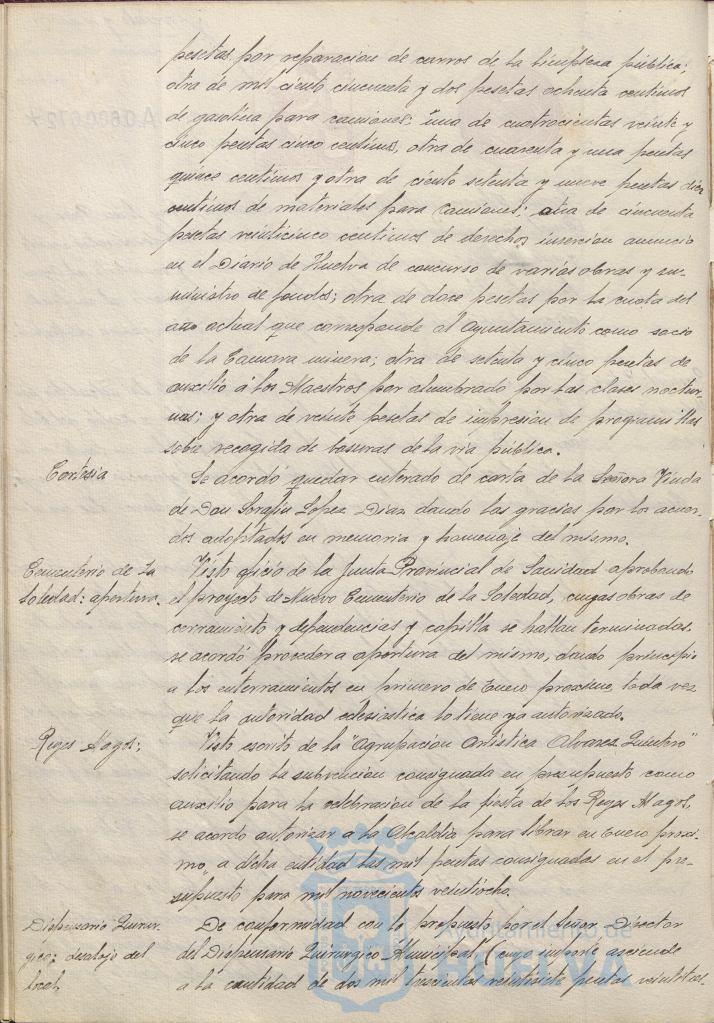 pesetas por reparación de carros de la limpieza pública;
otra de mil ciento cincuenta y dos pesetas ochenta centimos
de gasolina para camiones; una de cuatrocientas veinte y
cinco pesetas cinco centimos, otra de cuarenta y una pesetas
quince centimos y otra de ciento setenta y nueve pesetas diez
centimos de materiales para camiones; otra de cincuenta
pesetas veinticinco centimos de derechos insercion anuncio
en el Diario de Huelva de concurso de varias obras y su-
ministro de faroles; otra de doce pesetas por la cuota del
año actual que corresponde al Ayuntamiento como socio
de la Camara minera; otra de setenta y cinco pesetas de
auxilio á los Maestros por alumbrado por las clases noctur-
nas; y otra de veinte pesetas de impresion de programillas
sobre recogida de basuras de la via pública.
Cortesia
Se acordó quedar enterado de carta de la Señora Viuda
de Don Serafin Lopez Diaz dando las gracias por los acuer-
dos adoptados en memoria y homenaje del mismo.
Cementerio de la
Soledad: apertura.
Visto oficio de la Junta Provincial de Sanidad aprobando
el proyecto de Nuevo Cementerio de la Soledad, cuyas obras de
cerramiento y dependencias y capilla se hallan terminadas,
se acordó proceder a apertura del mismo, dando principio
a los enterramientos en primero de Enero proximo, toda vez
que la autoridad eclesiastica lo tiene ya autorizado.
Reyes Magos:
Visto escrito de la "Agrupacion Artistica Alvarez Quintero"
solicitando la subvencion consignada en presupuesto como
auxilio para la celebracion de la fiesta de los Reyes Magos,
se acordo autorizar a la Alcaldia para librar en Enero proxi-
mo, a dicha entidad las mil pesetas consignadas en el pre-
supuesto para mil novecientos veintiocho.
Dispensario Quirur-
gico: desalojo del
local.
De conformidad con lo propuesto por el Señor Director
del Dispensario Quirurgico Municipal (cuyo importe asciende
a la cantidad de dos mil trescientas veintisiete pesetas veintitres
Ayuntamiento de
HUELVA